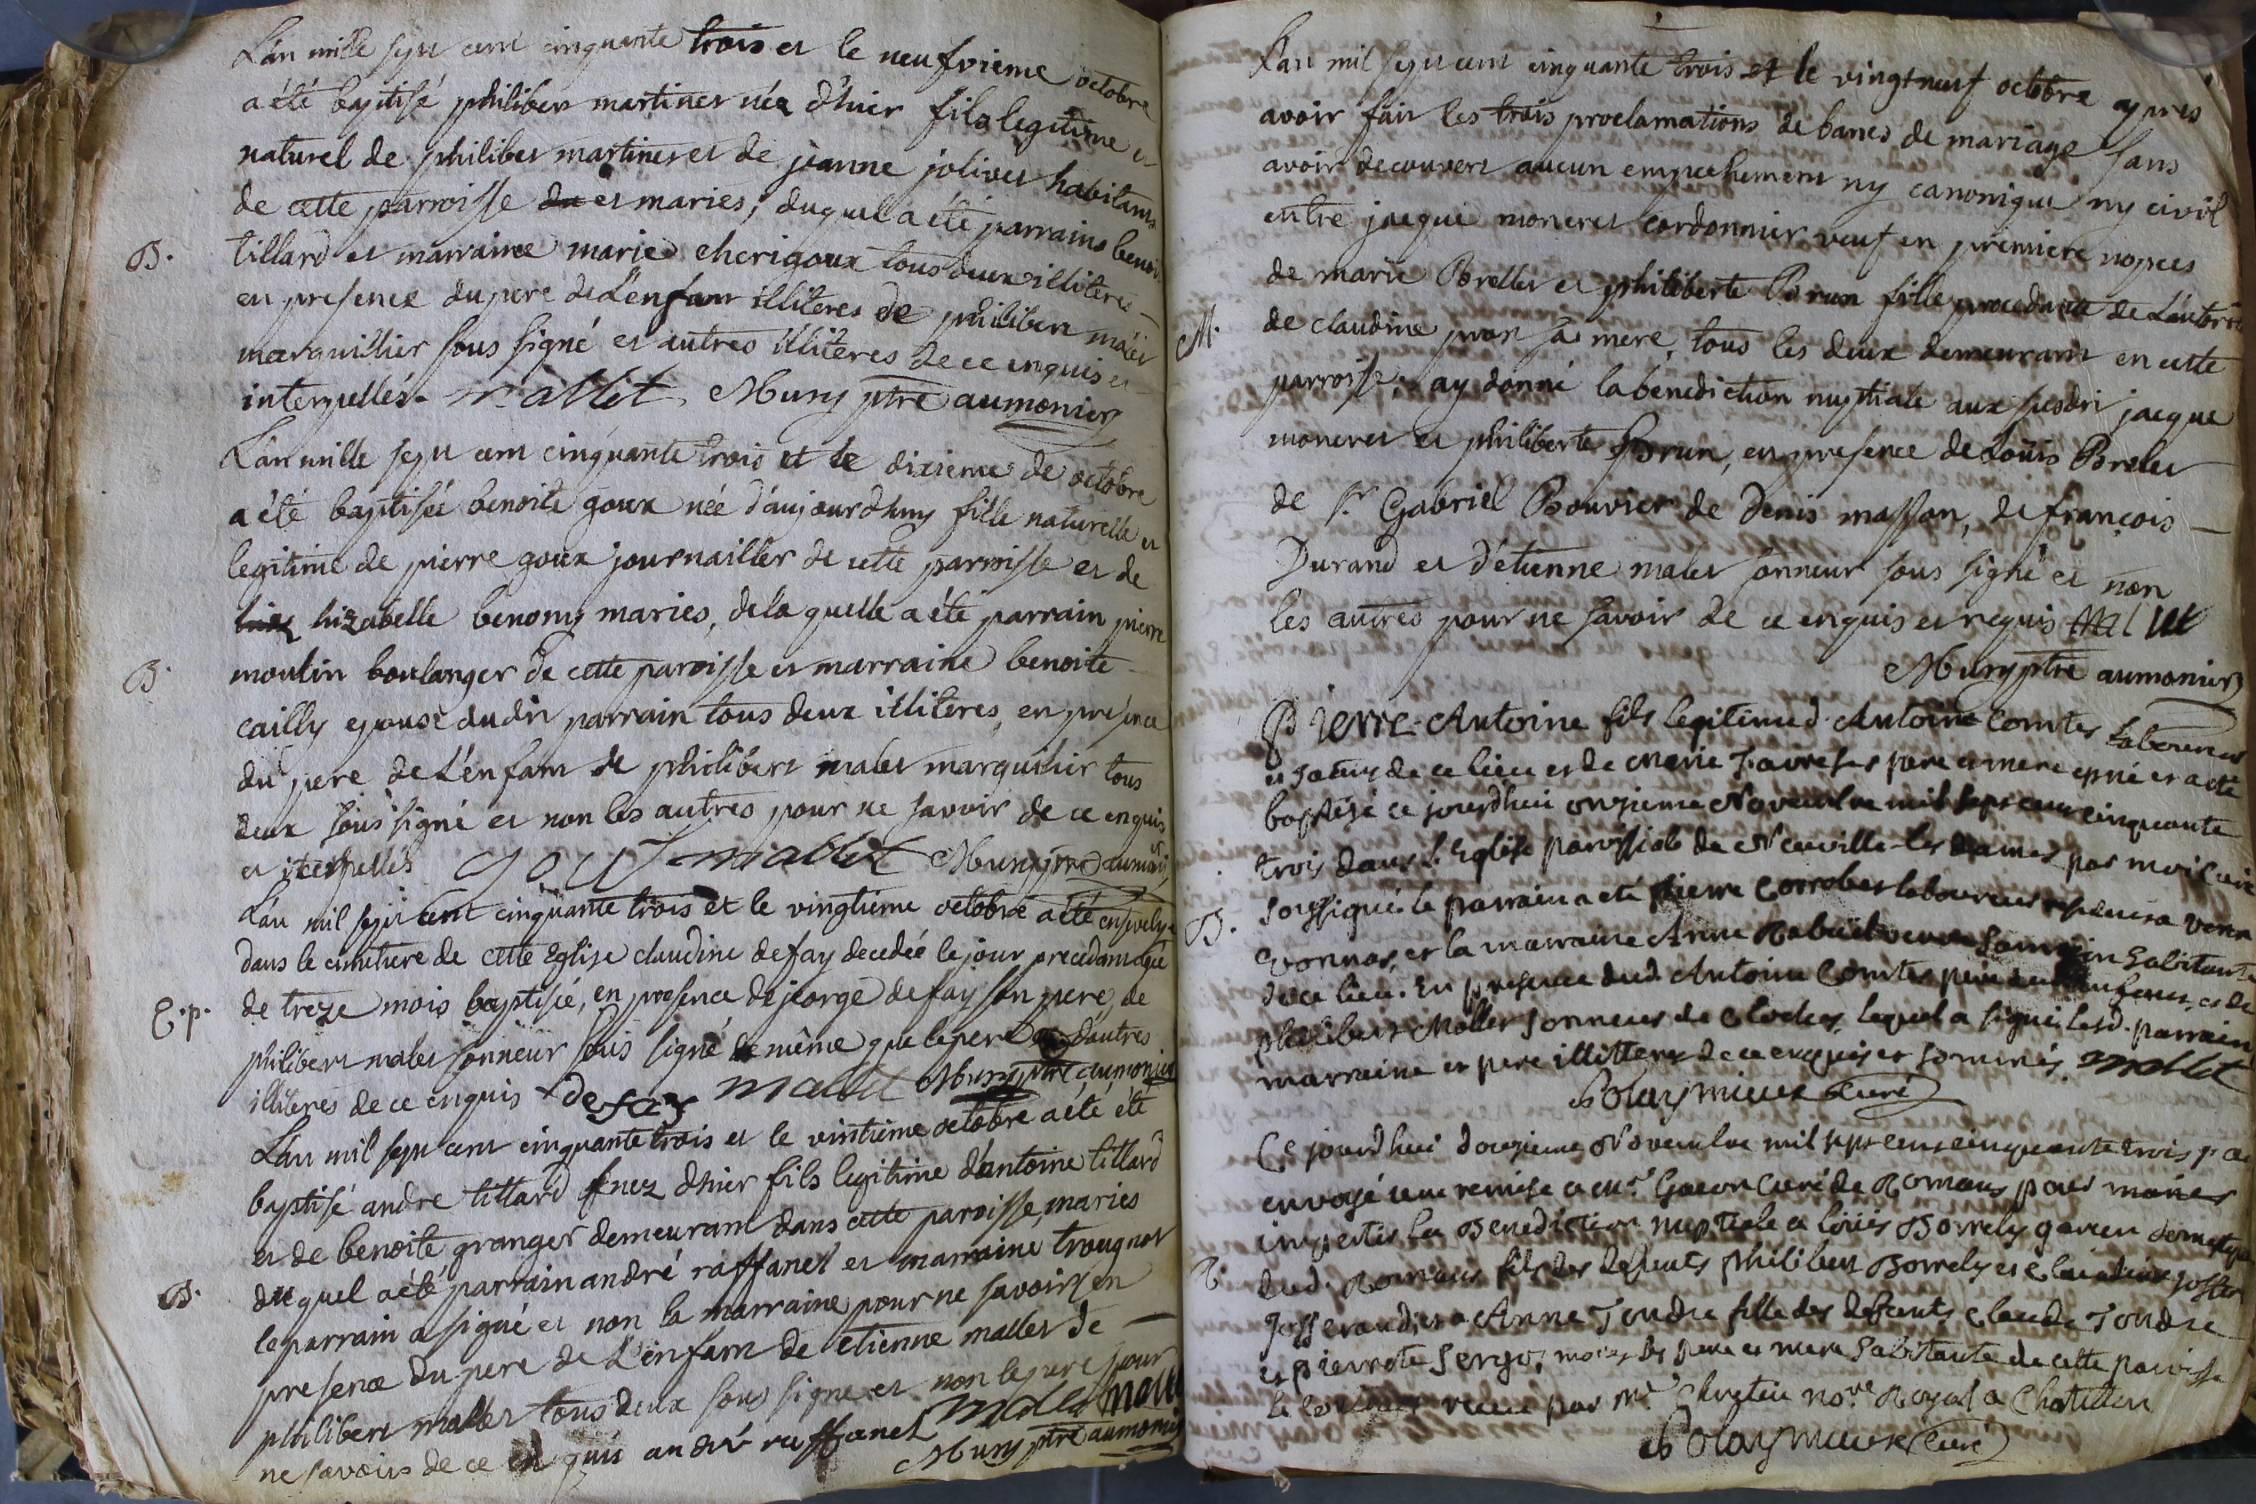 L'an mille sept cent cinquante trois et le neufvieme octobre
a été baptisé philibert martinet née d'hier fils legitime et
naturel de philibet martinet et de jeanne jolivet habitants
de cette parroisse et maries, duquel a été parrain benoi
B. tillard et marraine marie cherigoux tous deux illiteres
en presence du pere de L'enfant illiteres de philibert malet
marguillier sous signé et autres illiteres de ce enquis et
interpellés. mallet Muny ptre aumonier
L'an mille sept cent cinquante trois et le dixieme de octobre
a été baptisée benoite goux née d'aujourdhuy fille naturelle et
legitime de pierre goux journailler de cette parroisse et de
luizabelle benomy maries, de la quelle a été parrain pierre
B. moulin boulanger de cette paroisse et marraine benoite
cailly epouse dudit parrain tous deux illiteres, en presence
du pere de L'enfant de philibert malet marguilier tous
deux sous signé et non les autres pour ne savoir de ce enquis
et iterpellés goux mallet Muny ptre aumonier
L'an mil sept cent cinquante trois et le vingtieme octobre a été ensevely
dans le cimetiere de cette Eglise claudine defay decedée le jour precedant agée
E.p. de treze mois baptisée, en presence de jeorge defay son pere, de
philibert malet sonneur sous signé de même que le pere d'autres
illiteres de ce enquis defay mallet Muny ptre aumonier
L'an mil sept cent cinquante trois et le vintieme octobre a été été
baptisé andre tillard nez d'hier fils legitime d'antoine tillard
et de benoite granger demeurant dans cette paroisse, maries
B. du quel a été parrain andré raffanel et marraine trougnot
le parrain a signé et non la marraine pour ne savoir, en
presence du pere de L'enfant de etienne mallet de
philibert mallet tous deux sous signé et non le pere pour
ne savoirs de ce enquis andré raffanel mallet malet
Muny ptre aumonier
L'an mil sept cent cinquante trois et le vingt neuf octobre apres
avoir fait les trois proclamations de bancs de mariage sans
avoir decouvert aucun empechement ny canonique ny civil
entre jacque moneret cordonnier veuf en premiere nopces
de marie Brellet et philiberte Brun fille procedante de L'autorité
M. de claudine pron sa mere, tous les deux demeurant en cette
parroisse, ay donné la benediction nuptiale aux susdit jacque
moneret et philiberte Brun, en presence de Loüis Brelet
de Sr Gabriel Bouvier de Denis masson, de françois
Durand et d'étienne malet sonneur sous signé et non
les autres pour ne savoir de ce enquis et requis mallet
Muny ptre aumonier
Pierre-Antoine fils legitime d'Antoine Comtet Laboureur
de ce lieu et de Marie ses pere et mere est né et a eté
baptisé ce jourdhui onzieme Novembre mil sept cent cinquante
trois dans l'Eglise paroissiale de Neuville-les dames par moi Curé
soussigné. le parrain a eté pierre Corrobert laboureur a
B. vonnas, et la marraine Anne habitante
de ce lieu. En presence dud. Antoine Comtet pere de L'enfant, et de
philibert Mallet sonneur de cloches, lequel a signé, lesd. parrain
marraine et pere illitteres de ce enquis et sommés. mallet
Curé
Ce jourdhui douzieme Novembre mil sept cent cinquante trois j'ai
envoyé une remise a mr Curé de Romans pour
impartir La Benediction nuptiale a loüis Borrely garcon domestique
dud. Romans fils des defunts philibert Borrely et Claudine
Josserand, et a Anne Tondu fille des defunts Claude Tondu
et pierrette ses pere et mere habitante de cette paroisse
receu par Mr Chretien Nore Royal a Chatillon
Curé